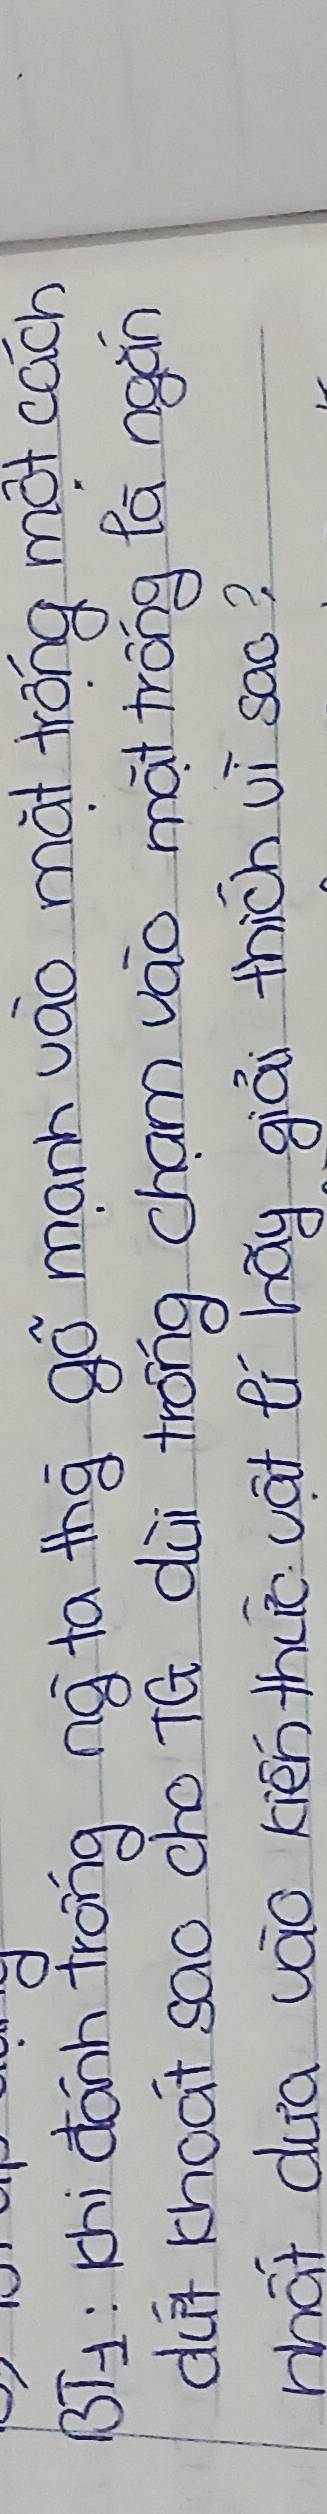 BT1: khi đánh trống ng̀ ta thg̀ gõ mạnh vào mặt trống một cách
dứt khoát sao cho TG dùi trống chạm vào mặt trống là ngắn
nhất dựa vào kiến thức vật lí hãy giải thích vì sao?